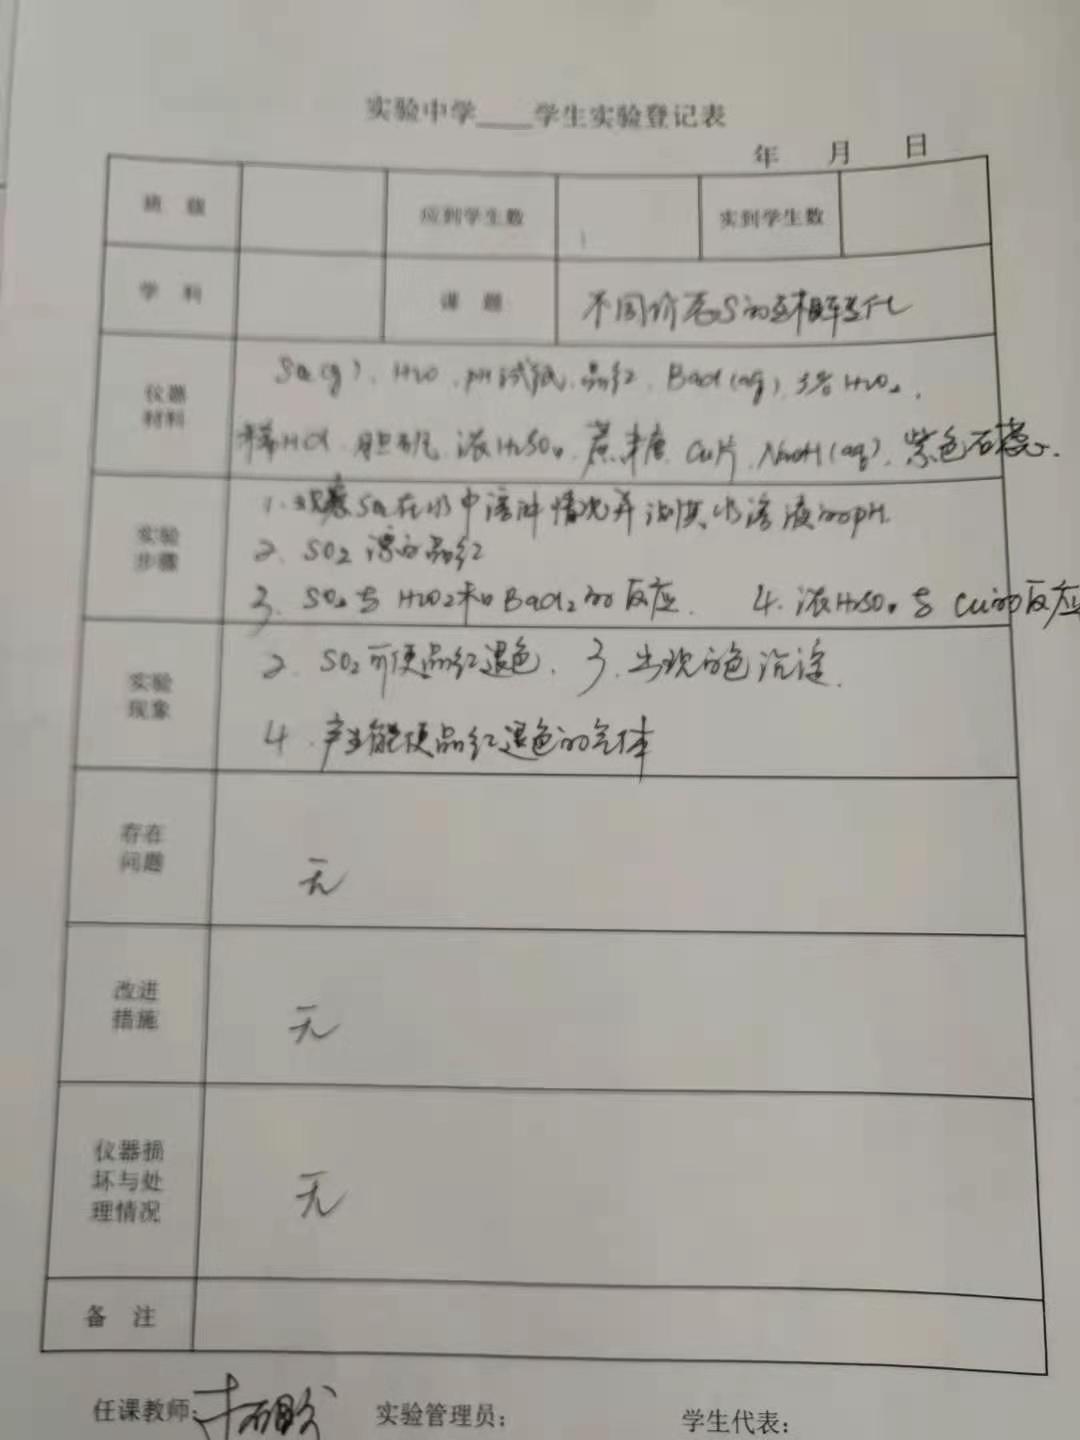 实验中学____学生实验登记表
年 月 日
班 级 应到学生数 实到学生数
学 科 课 题 不同价态S的互相转化
仪器材料 SO₂(g)、H₂O、pH试纸、品红、BaCl₂(aq)、3% H₂O₂、
稀HCl、胆矾、浓H₂SO₄、蔗糖、Cu片、NaOH(aq)、紫色石蕊.
实验步骤 1. 观察SO₂在水中溶解情况并测其水溶液的pH.
2. SO₂漂白品红
3. SO₂与H₂O₂和BaCl₂的反应. 4. 浓H₂SO₄与Cu的反应
实验现象 2. SO₂可使品红退色. 3. 出现白色沉淀.
4. 产生能使品红退色的气体
存在问题 无
改进措施 无
仪器损坏与处理情况 无
备 注
任课教师: 实验管理员: 学生代表: